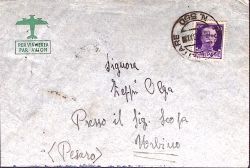 PER VIA AEREA
PAR AVION
N. 550
Signora
Zeppi Olga
Presso il Sig. Scopa
Urbino
(Pesaro)